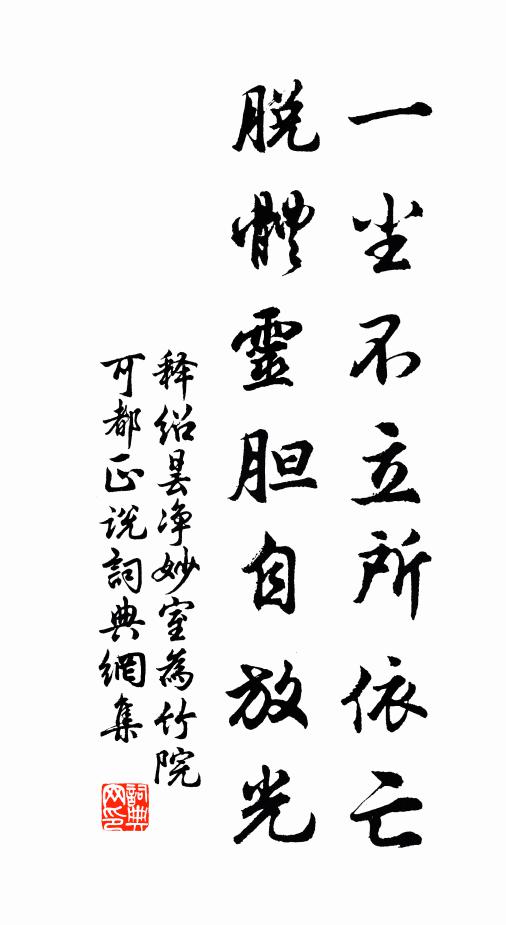 一尘不立所依亡
脱體靈胆自放光
释绍昙净妙室為竹院
可都正说詞典網集
詞典网印